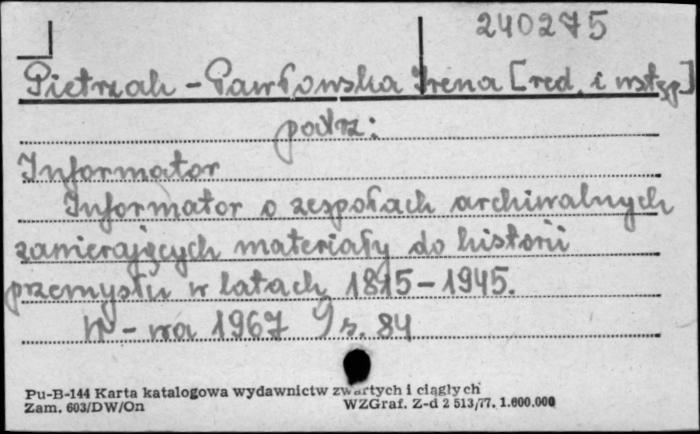 240275
Pietrzak-Pawłowska Irena [red. i wstęp]
patrz:
Informator
Informator o zespołach archiwalnych
zawierających materiały do historii
przemysłu w latach 1815-1945.
W-wa 1967 s. 84
Pu-B-144 Karta katalogowa wydawnictw zwartych i ciągłych
Zam. 603/DW/On WZGraf. Z-d 2 513/77. 1.600.000